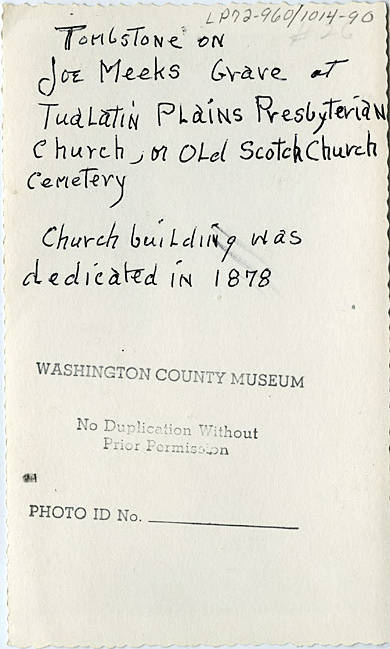 LP72-960/1014-90
Tombstone on
Joe Meeks Grave at
Tualatin Plains Presbyterian
Church, or Old Scotch Church
Cemetery
Church building was
dedicated in 1878
WASHINGTON COUNTY MUSEUM
No Duplication Without
Prior Permission
PHOTO ID No.